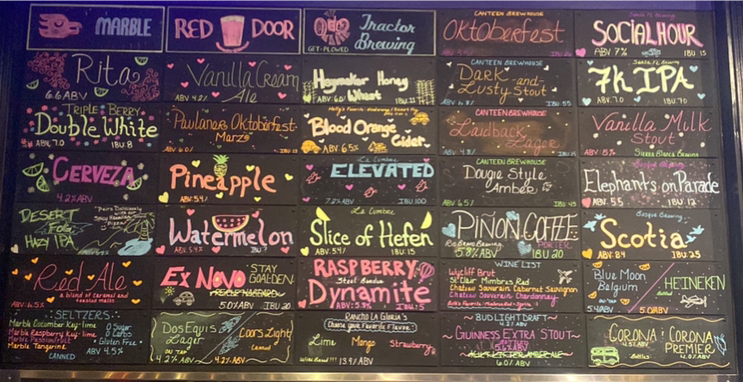 MARBLE
RED DOOR
Tractor
Brewing
GET PLOWED
CANTEEN BREWHOUSE
Oktoberfest
SOCIAL HOUR
ABV 7%
IBU 15
Rita
6.6 ABV
Vanilla Cream
Ale
ABV 4.2%
Haymaker Honey
Wheat
CANTEEN BREWHOUSE
Dark-and-
Lusty Stout
IBU 55
7K IPA
ABV: 7.0
IBU: 70
TRIPLE BERRY
Double White
ABV: 7.0
IBU: 8
Paulaner Oktoberfest
Blood Orange
Cider
ABV 6.5%
CANTEEN BREWHOUSE
Laidback
Lager
Vanilla Milk
Stout
CERVEZA
4.2% ABV
Pineapple
ABV: 5.4%
La Cumbre
ELEVATED
7.2% ABV
IBU 100
CANTEEN BREWHOUSE
Dougie Style
Amber
Elephants on Parade
ABV: 5.5
IBU 12
DESERT
FOG
HAZY IPA
Pairs Deliciously
with our
Watermelon
La Cumbre
Slice of Hefen
ABV: 5.4%
IBU: 15
PIÑON COFFEE
PORTER
5.8% ABV
IBU 20
Scotia
ABV: 8.4
IBU: 25
Red Ale
a blend of caramel and
EX NOVO
STAY
GOALDEN
5.0% ABV
IBU 20
RASPBERRY
Dynamite
WINE LIST
Wycliff Brut
St. Clair Mimbres Red
Chateau Souverain Cabernet Sauvignon
Chateau Souverain Chardonnay
Blue Moon
Belgium
HEINEKEN
5.0% ABV
SELTZERS
Marble Cucumber Key-lime
Marble Raspberry Key-lime
Marble Passionfruit
Marble Tangerine
0 Sugar
0 Carbs
Gluten Free
ABV 4.5%
CANNED
Dos Equis
Lager
ON TAP
4.2% ABV
Coors Light
Canned
4.2% ABV
RANCHO LA GLORIA'S
Choose your Favorite Flavor
Lime
Mango
Strawberry
13.9% ABV
BUD LIGHT DRAFT
4.2% ABV
GUINNESS EXTRA STOUT
6.0% ABV
CORONA
CORONA
PREMIER
Bottles